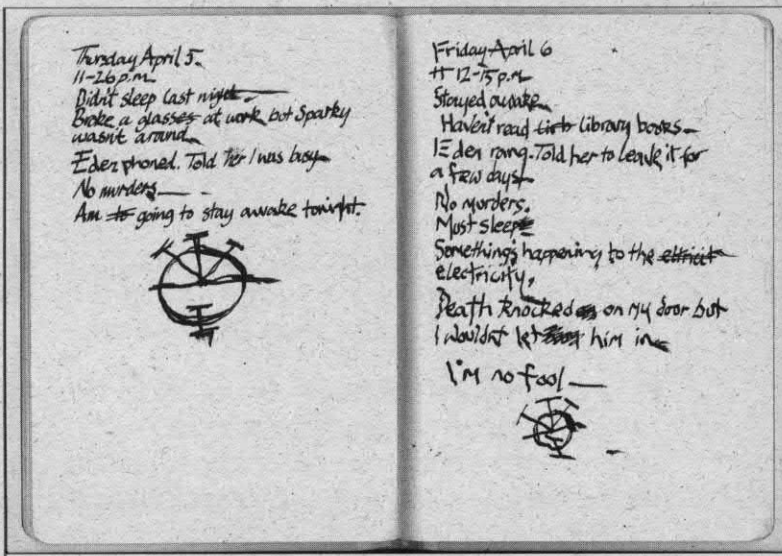 Thursday April 5.
11-26 p.m.
Didn't sleep last night.
Broke a glasses at work but Sparky
wasn't around.
Eden phoned. Told her I was busy.
No murders
Am to going to stay awake tonight.
Friday April 6
11 12-15 p.m.
Stayed awake.
Haven't read library books.
Eden rang. Told her to leave it for
a few days.
No murders.
Must sleep
Something's happening to the
electricity.
Death knocked on my door but
I wouldn't let him in.
I'm no fool